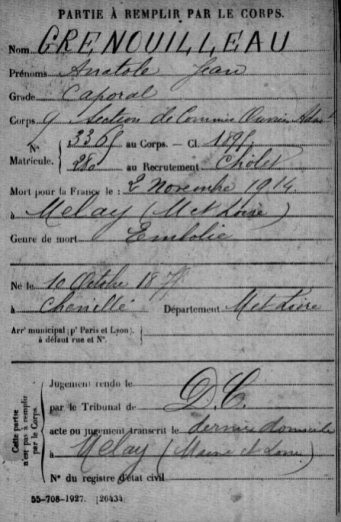 PARTIE À REMPLIR PAR LE CORPS.
Nom GRENOUILLEAU
Prénoms Anatole Jean
Grade Caporal
Corps 9 Section de Commis Ouvriers
N° Matricule. { 3365 au Corps. — Cl. 1895
280 au Recrutement Cholet
Mort pour la France le : 2 Novembre 1914
à Melay (M et Loire)
Genre de mort Embolie
Né le 10 Octobre 187
à Chenillé Département M et Loire
Arrt municipal (pr Paris et Lyon), à défaut rue et N°.
Cette partie n'est pas à remplir par le Corps.
Jugement rendu le
par le Tribunal de D.C.
acte ou jugement transcrit le dernier domicile
à Melay (Maine et Loire)
N° du registre d'état civil
55-708-1927. [26434]